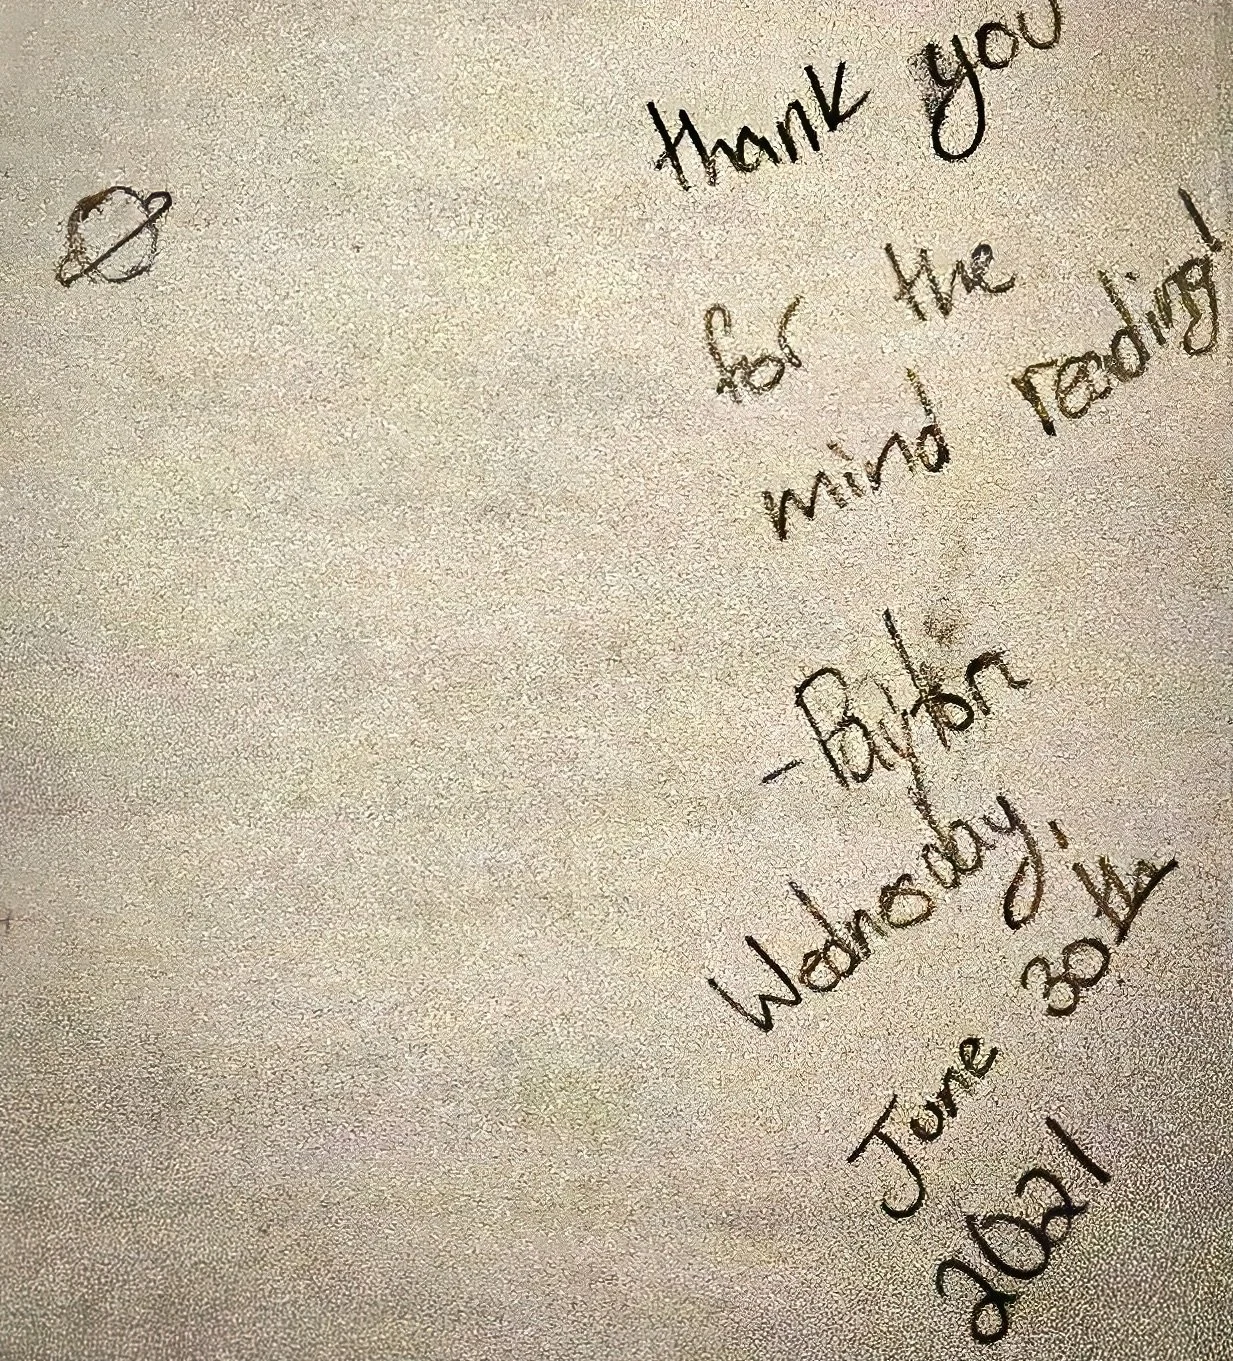 thank you
for the
mind reading!
- Payton
Wednesday,
June 30th
2021